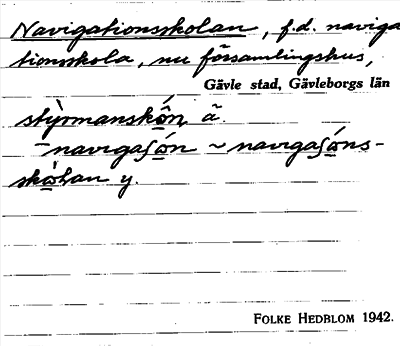 Navigationsskolan, f.d. naviga
tionsskola, nu församlingshus,
Gävle stad, Gävleborgs län
stỳrmanskó̂n, ã.
navigaʃón ~ navigaʃóns-
skò̱lan y.
FOLKE HEDBLOM 1942.